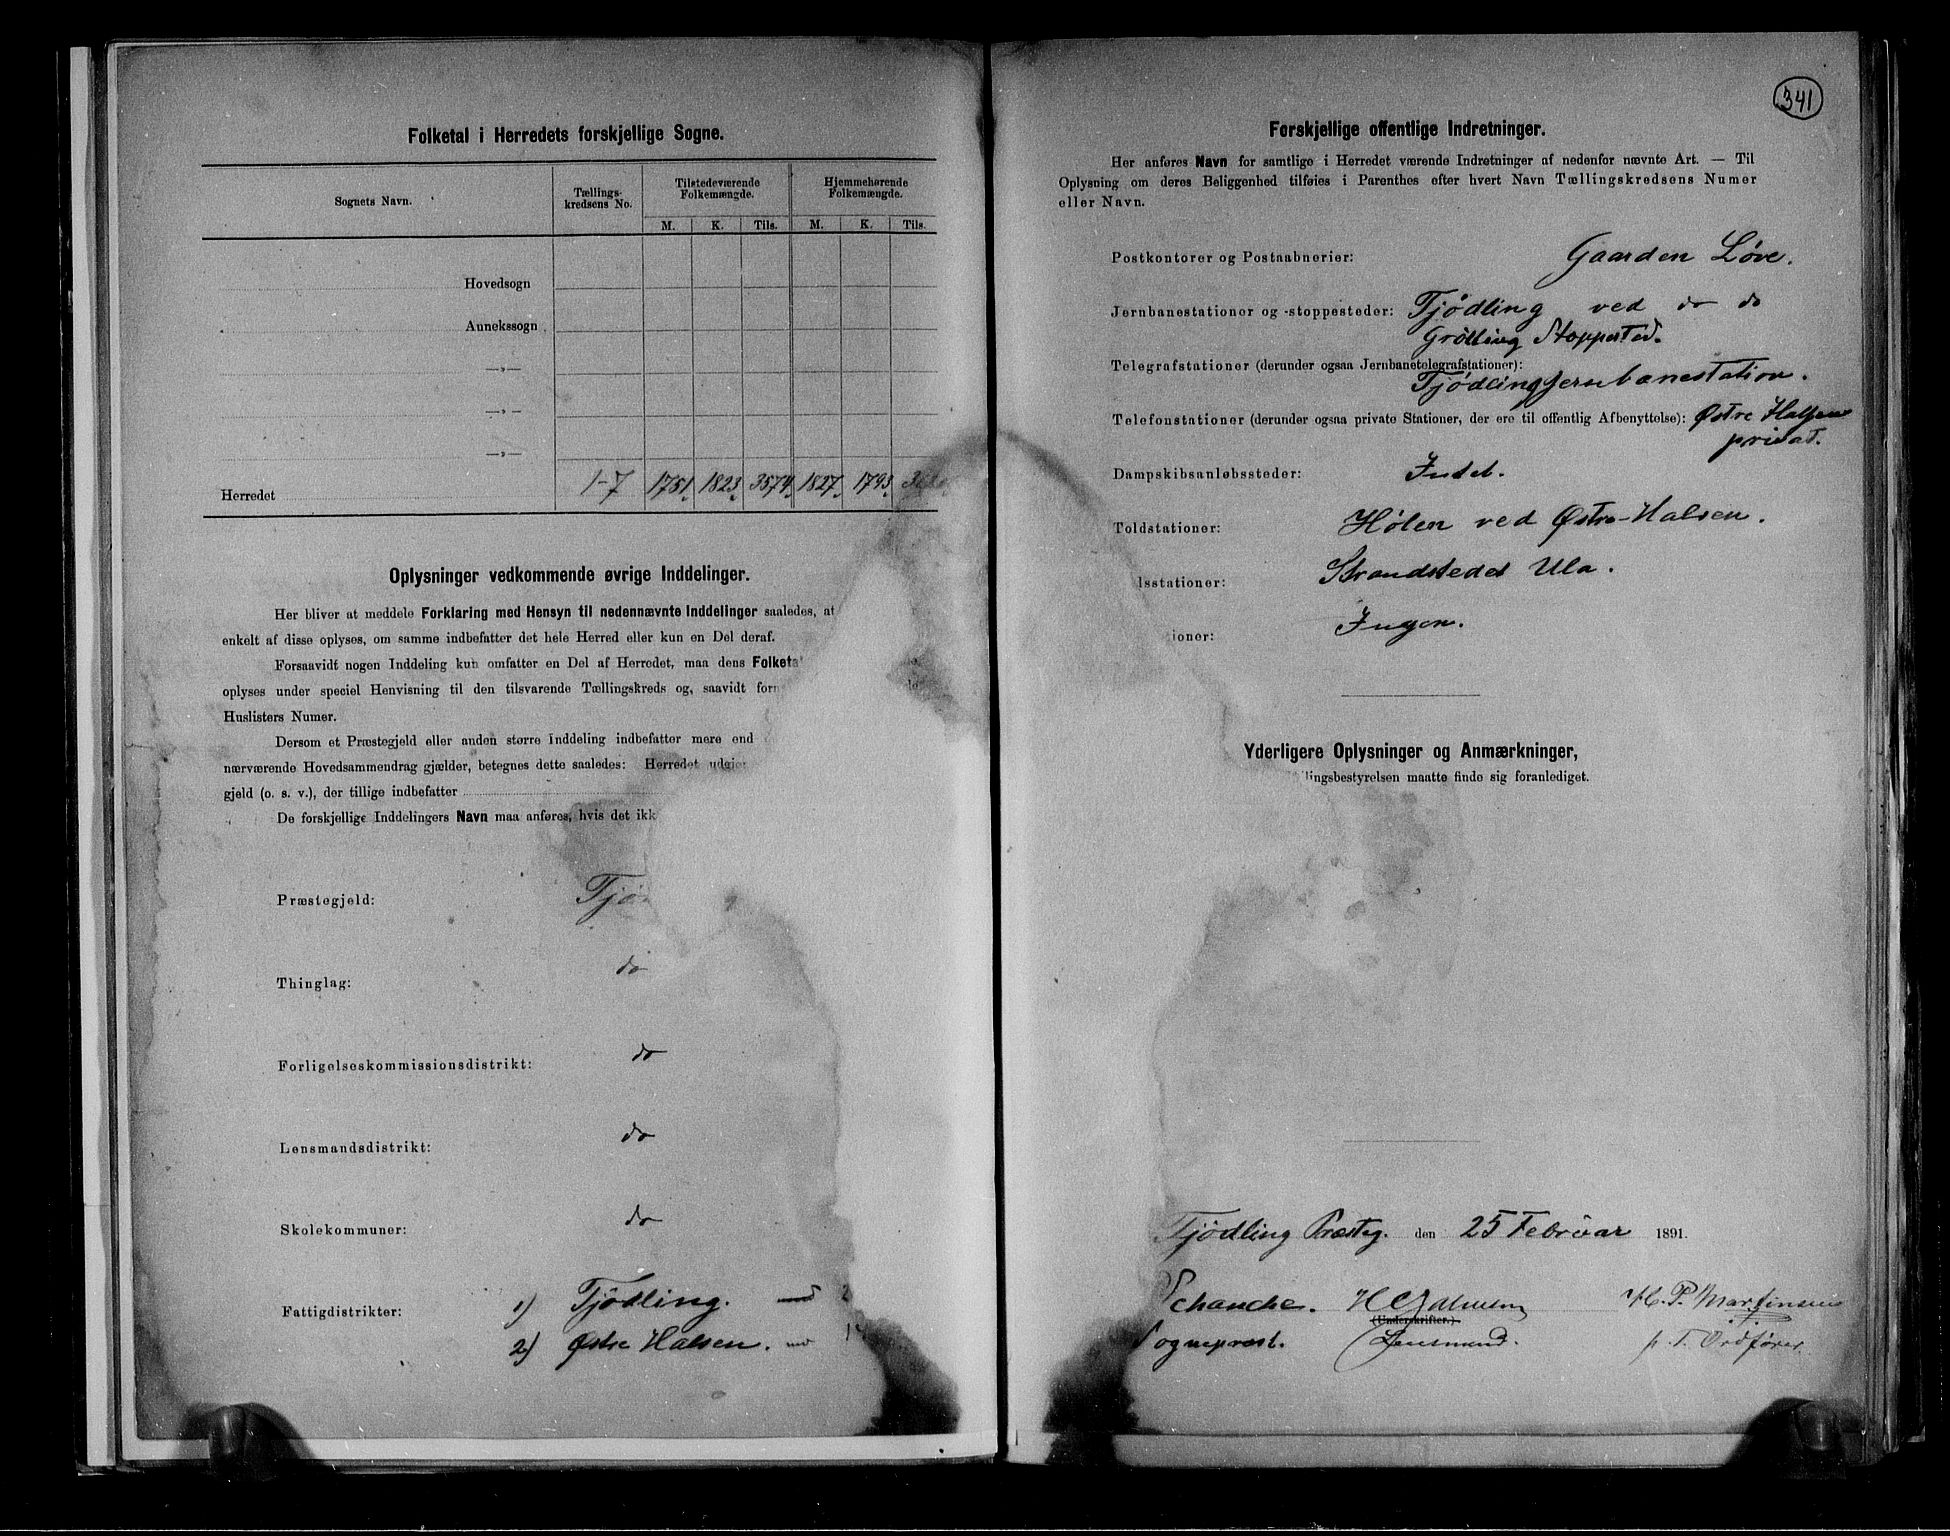 Folketal i Herredets forskjellige Sogne.
Sognets Navn.
Tællings-
kredsens No.
Tilstedeværende
Folkemængde.
Hjemmehørende
Folkemængde.
M. K. Tils. M. K. Tils.
Hovedsogn
Annekssogn
—„—
—„—
—„—
Herredet 1-7 1751 1823 3574 1827 1793
Oplysninger vedkommende øvrige Inddelinger.
Her bliver at meddele Forklaring med Hensyn til nedennævnte Inddelinger saaledes, at
enkelt af disse oplyses, om samme indbefatter det hele Herred eller kun en Del deraf.
Forsaavidt nogen Inddeling kun omfatter en Del af Herredet, maa dens Folketa
oplyses under speciel Henvisning til den tilsvarende Tællingskreds og, saavidt forn
Huslisters Numer.
Dersom et Præstegjeld eller anden større Inddeling indbefatter mere end
nærværende Hovedsammendrag gjælder, betegnes dette saaledes: Herredet udgjør
gjeld (o. s. v.), der tillige indbefatter
De forskjellige Inddelingers Navn maa anføres, hvis det ikk
Præstegjeld: Tjø
Thinglag: do
Forligelseskommissionsdistrikt: do
Lensmandsdistrikt: do
Skolekommuner: do
Fattigdistrikter: 1) Tjödling. med 2
2) Østre Halsen. md 1
341
Forskjellige offentlige Indretninger.
Her anføres Navn for samtlige i Herredet værende Indretninger af nedenfor nævnte Art. — Til
Oplysning om deres Beliggenhed tilføies i Parenthes efter hvert Navn Tællingskredsens Numer
eller Navn.
Postkontorer og Postaabnerier: Gaarden Løve.
Jernbanestationer og -stoppesteder: Tjødling ved do do
Grötting Stoppested.
Telegrafstationer (derunder ogsaa Jernbanetelegrafstationer):
Tjødling Jernbanestation.
Telefonstationer (derunder ogsaa private Stationer, der ere til offentlig Afbenyttelse): Østre Halsen
privat.
Dampskibsanløbssteder: Intet.
Toldstationer: Hølen ved Østre-Halsen.
lsstationer: Strandstedet Ula.
tioner: Ingen.
Yderligere Oplysninger og Anmærkninger,
llingsbestyrelsen maatte finde sig foranlediget.
Tjödling Præsteg. den 25 Februar 1891.
Schanche. H. P. Martinsen
(Underskrifter.)
Sogneprest. Lensmand. p. T. Ordfører.